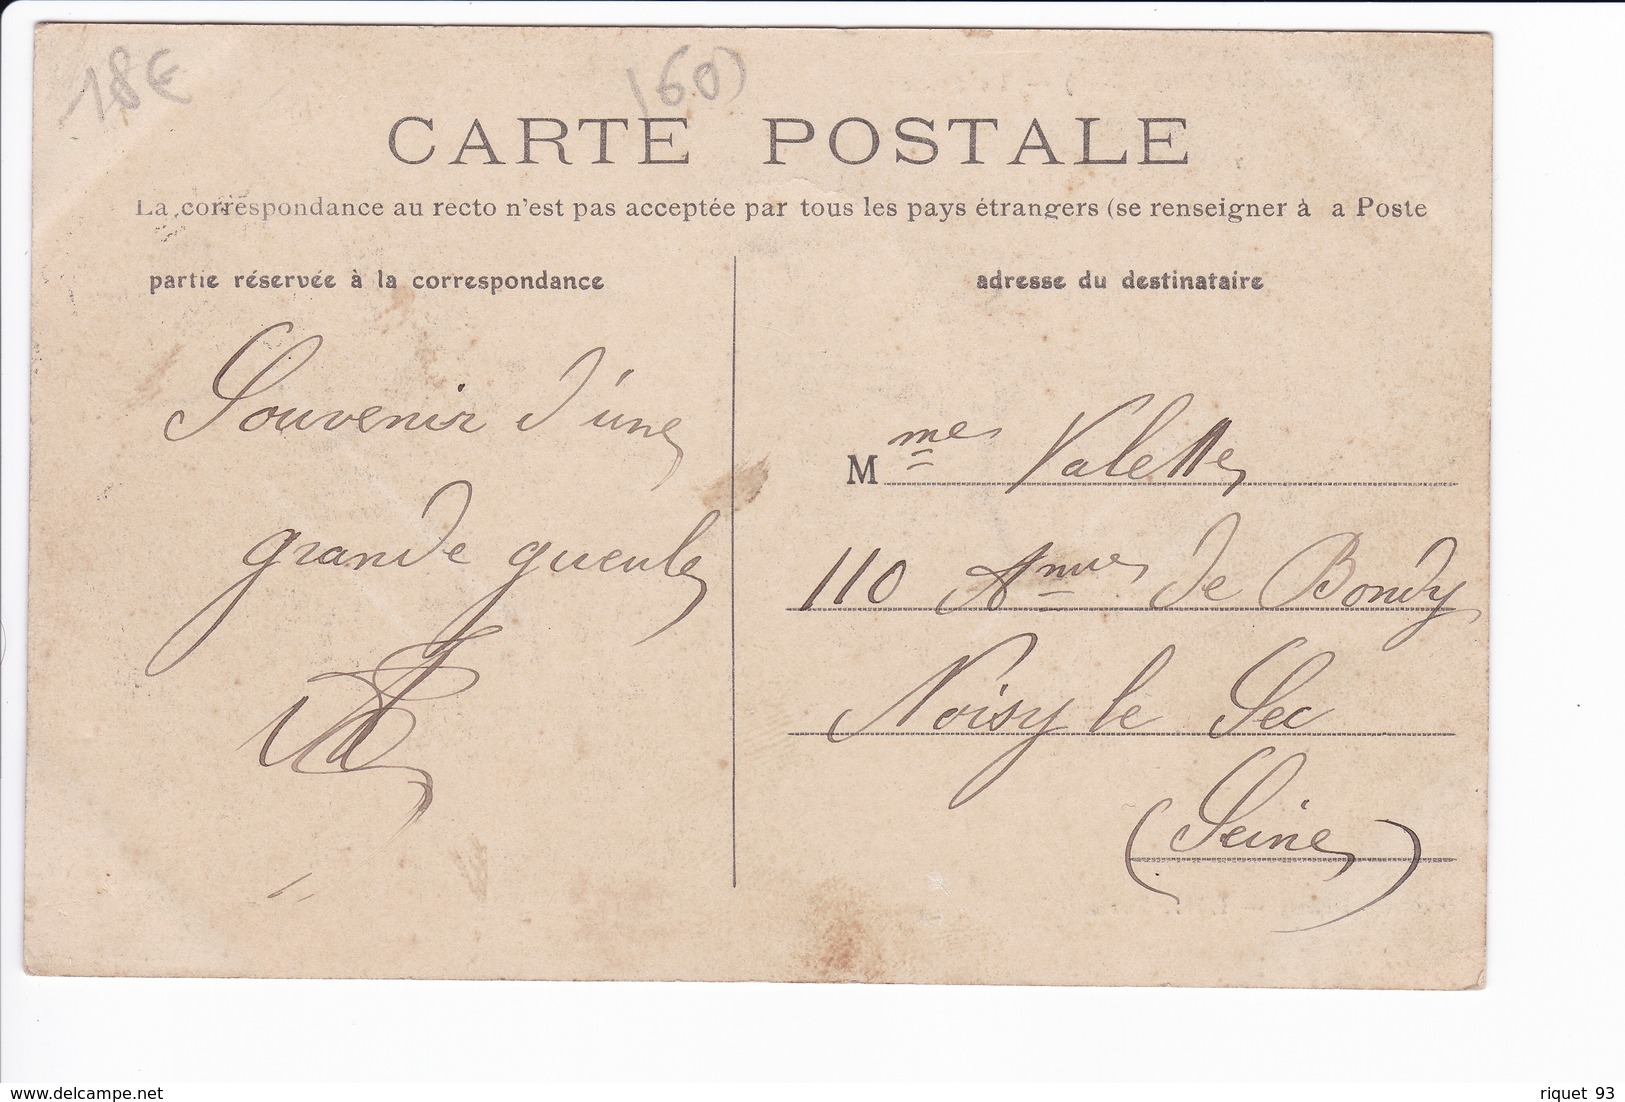 18€
(60)
CARTE POSTALE
La correspondance au recto n'est pas acceptée par tous les pays étrangers (se renseigner à a Poste
partie réservée à la correspondance
Souvenir d'une
grande gueule
adresse du destinataire
Mme Valette
110 Anue de Bondy
Noisy le Sec
(Seine)
www.delcampe.net
riquet 93